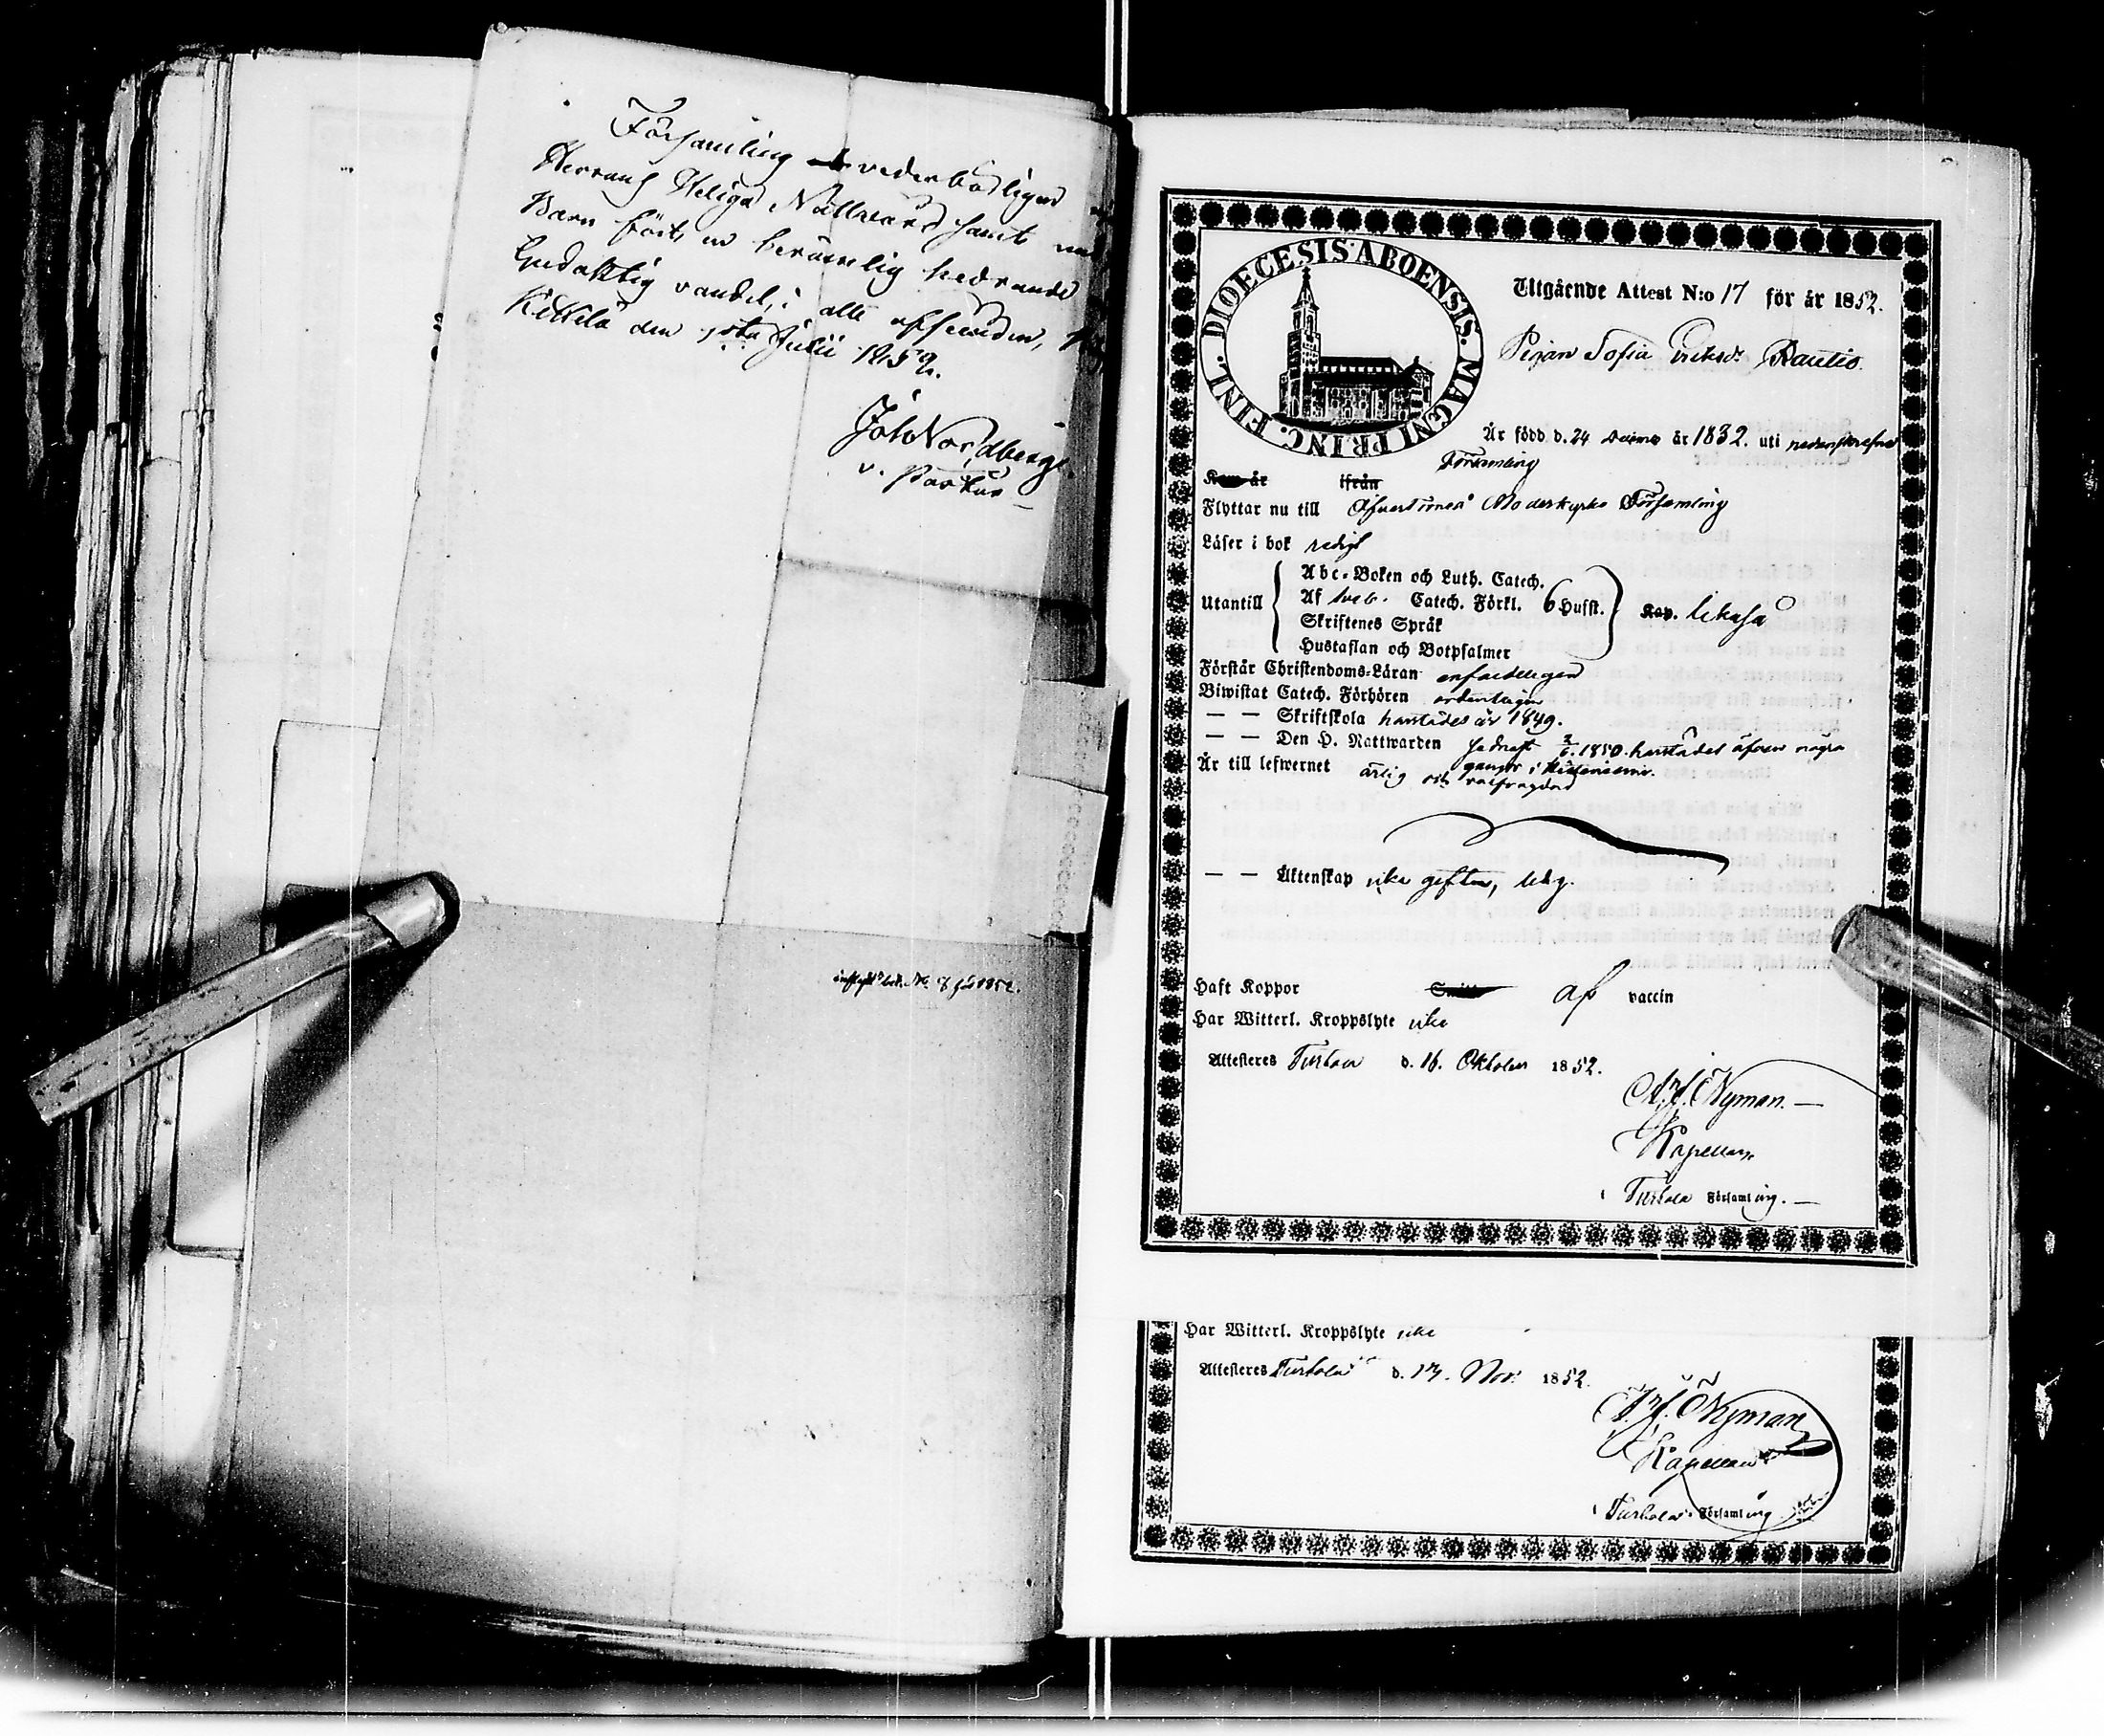 Församling vederbörligen
Herrans Heliga Nattward samt
Barn fört en berömelig hedrande
Gudaktig vandel, i alla afseenden,
Kittilä den 1sta Julii 1852.
Joh Nordberg
v. Pastor
DIOECESIS ABOENSIS. MAGNI PRINC. FINL.
Utgående Attest N:o 17 för år 1852.
Pigan Sofia Eriksdr Rautio.
Är född d. 24 år 1832. uti nedanskrefne
Församling
Kom år ifrån
Flyttar nu till Öfvertorneå Moderkyrko Församling
Läser i bok redigt
Abc-Boken och Luth. Catech.
Utantill Af Catech. Förkl. 6 Hufst. Kap. likaså
Skriftenes Språk
Hustaflan och Botpsalmer
Förstår Christendoms-Läran enfaldeligen
Biwistat Catech. Förhören ordentligen
— — Skriftskola härstädes år 1849.
— — Den H. Nattwarden sednast 2/6. 1850. härstädes äfven några
gånger i
Är till lefwernet ärlig och välfrägdad
— — Äktenskap icke giften, ledig.
Haft Koppor af vaccin
Har Witterl. Kroppslyte icke
Attesteres Turtola d. 16. Oktober 1852.
A. J. Nyman. —
Kapellan
i Turtola Församling. —
Har Witterl. Kroppslyte icke
Attesteres Turtola d. 17. Nov. 1852.
A. J. Nyman
Kapellan
i Turtola Församling